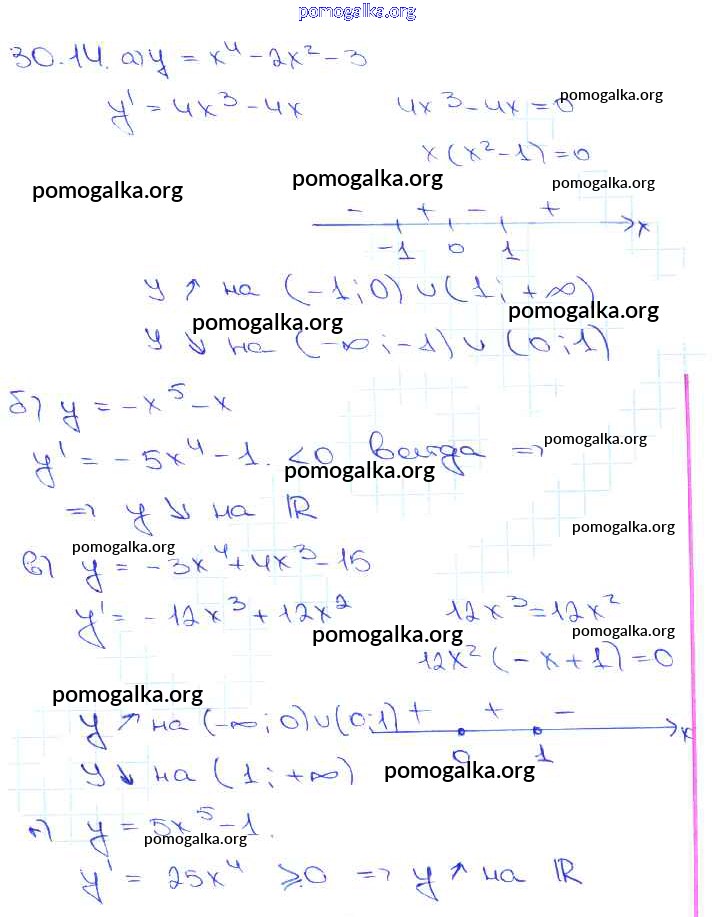 pomogalka.org
30.14. а) y = x⁴ - 2x² - 3
y' = 4x³ - 4x 4x³ - 4x = 0 pomogalka.org
x(x² - 1) = 0
pomogalka.org pomogalka.org pomogalka.org
- + - +
-1 0 1 x
y ↑ на (-1; 0) ∪ (1; +∞)
pomogalka.org pomogalka.org
y ↓ на (-∞; -1) ∪ (0; 1)
б) y = -x⁵ - x
y' = -5x⁴ - 1 < 0 всегда => pomogalka.org
pomogalka.org
=> y ↓ на ℝ
pomogalka.org
pomogalka.org
в) y = -3x⁴ + 4x³ - 15
y' = -12x³ + 12x² 12x³ = 12x²
pomogalka.org pomogalka.org
12x² (-x + 1) = 0
pomogalka.org
y ↑ на (-∞; 0) ∪ (0; 1) + + -
0 1 x
y ↓ на (1; +∞) pomogalka.org
г) y = 5x⁵ - 1
pomogalka.org
y' = 25x⁴ ⩾ 0 => y ↑ на ℝ